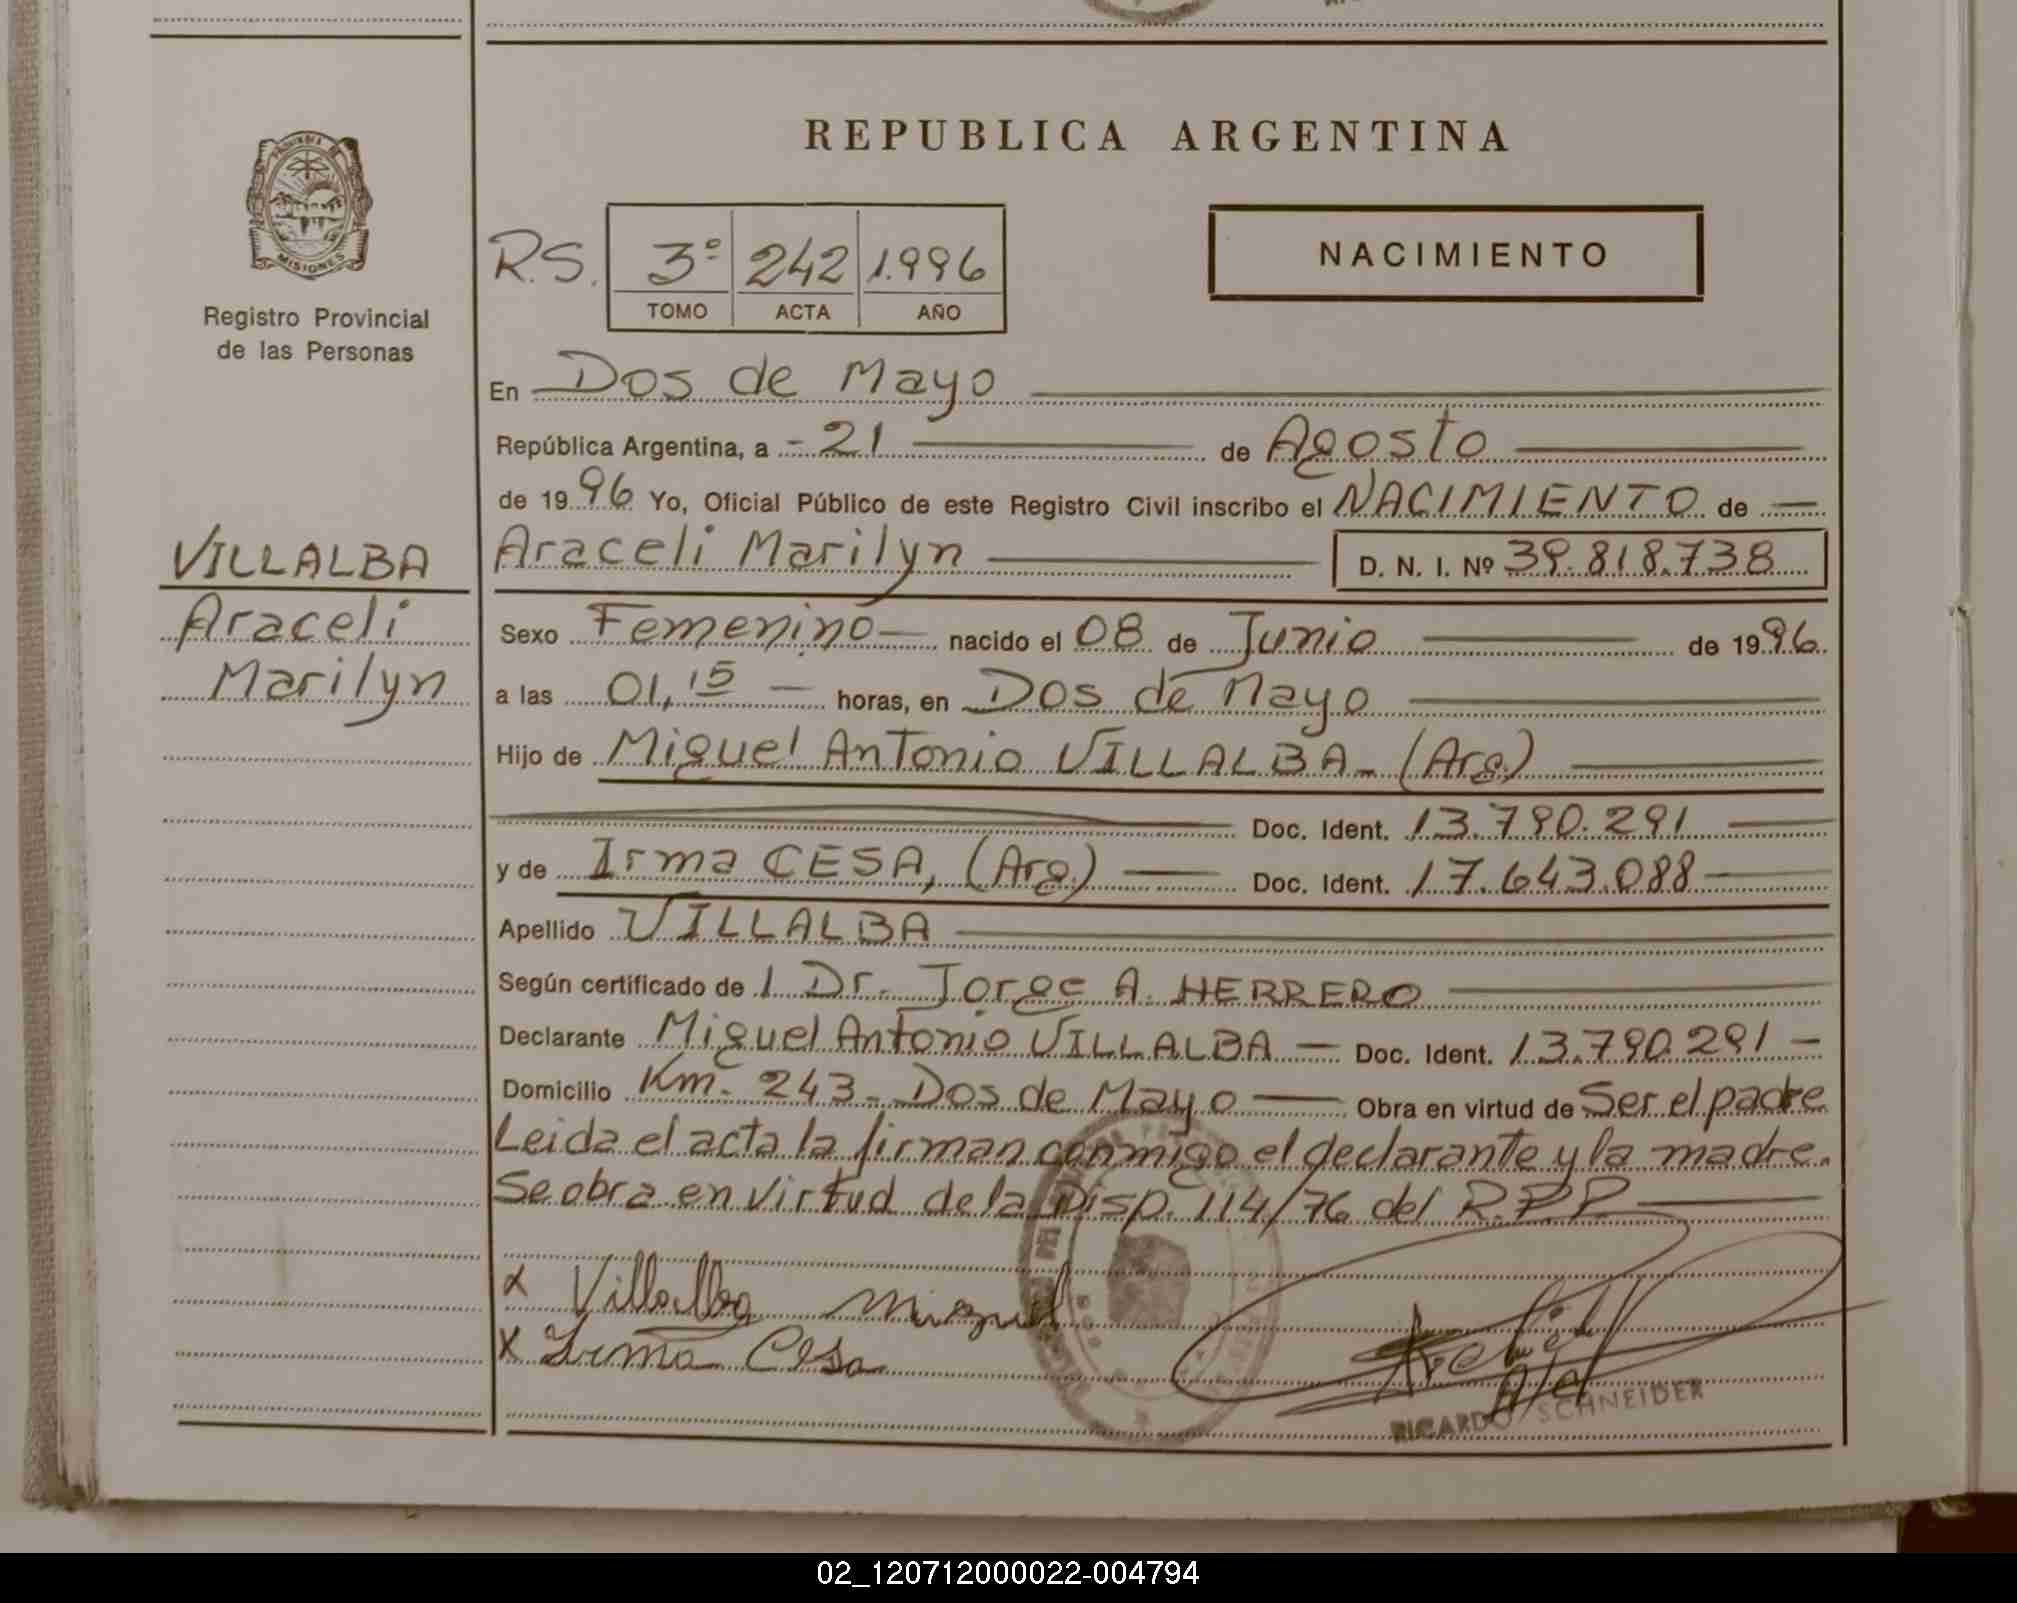 REPUBLICA ARGENTINA
MISIONES
Registro Provincial
de las Personas
R.S. 3º 242 1.996
TOMO ACTA AÑO
NACIMIENTO
En Dos de Mayo
República Argentina, a - 21 de Agosto
de 1996 Yo, Oficial Público de este Registro Civil inscribo el NACIMIENTO de
VILLALBA
Araceli
Marilyn
Araceli Marilyn D. N. I. Nº 39.818.738
Sexo Femenino nacido el 08 de Junio de 1996
a las 01,15 horas, en Dos de Mayo
Hijo de Miguel Antonio VILLALBA - (Arg)
Doc. Ident. 13.790.291
y de Irma CESA, (Arg.) Doc. Ident. 17.643.088
Apellido VILLALBA
Según certificado de l Dr. Jorge A. HERRERO
Declarante Miguel Antonio VILLALBA - Doc. Ident. 13.790.291 -
Domicilio Km. 243 - Dos de Mayo Obra en virtud de Ser el padre
Leida el acta la firman conmigo el declarante y la madre.
Se obra en virtud de la Disp. 114/76 del R.P.P
x Villalba Miguel
x Irma Cesa
RICARDO SCHNEIDER
02_120712000022-004794